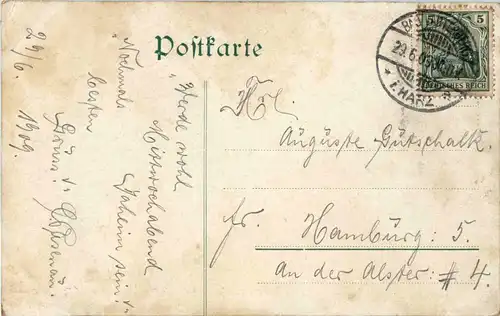 Postkarte
5 5
DEUTSCHES REICH
29.6.09
i. HARZ
29/6. 1909.
Werde wohl
Mittwochabend
daheim sein!
Nochmals
besten
Gruss! v.
Frl.
Auguste Gutschalk.
Hamburg: 5.
An der Alster: # 4.